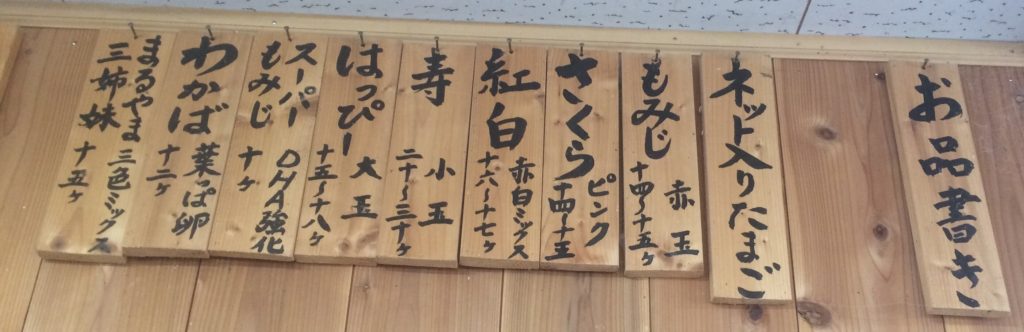 お品書き
ネット入りたまご
もみじ 赤玉
十四〜十五ヶ
さくら ピンク
十四〜十五
紅白 赤白ミックス
十六〜十七ヶ
寿 小玉
二十〜三十ヶ
はっぴー 大玉
十五〜十八ヶ
スーパー
もみじ DHA強化
十ヶ
わかば 葉っぱ卵
十二ヶ
まるやま
三姉妹 三色ミックス
十五ヶ